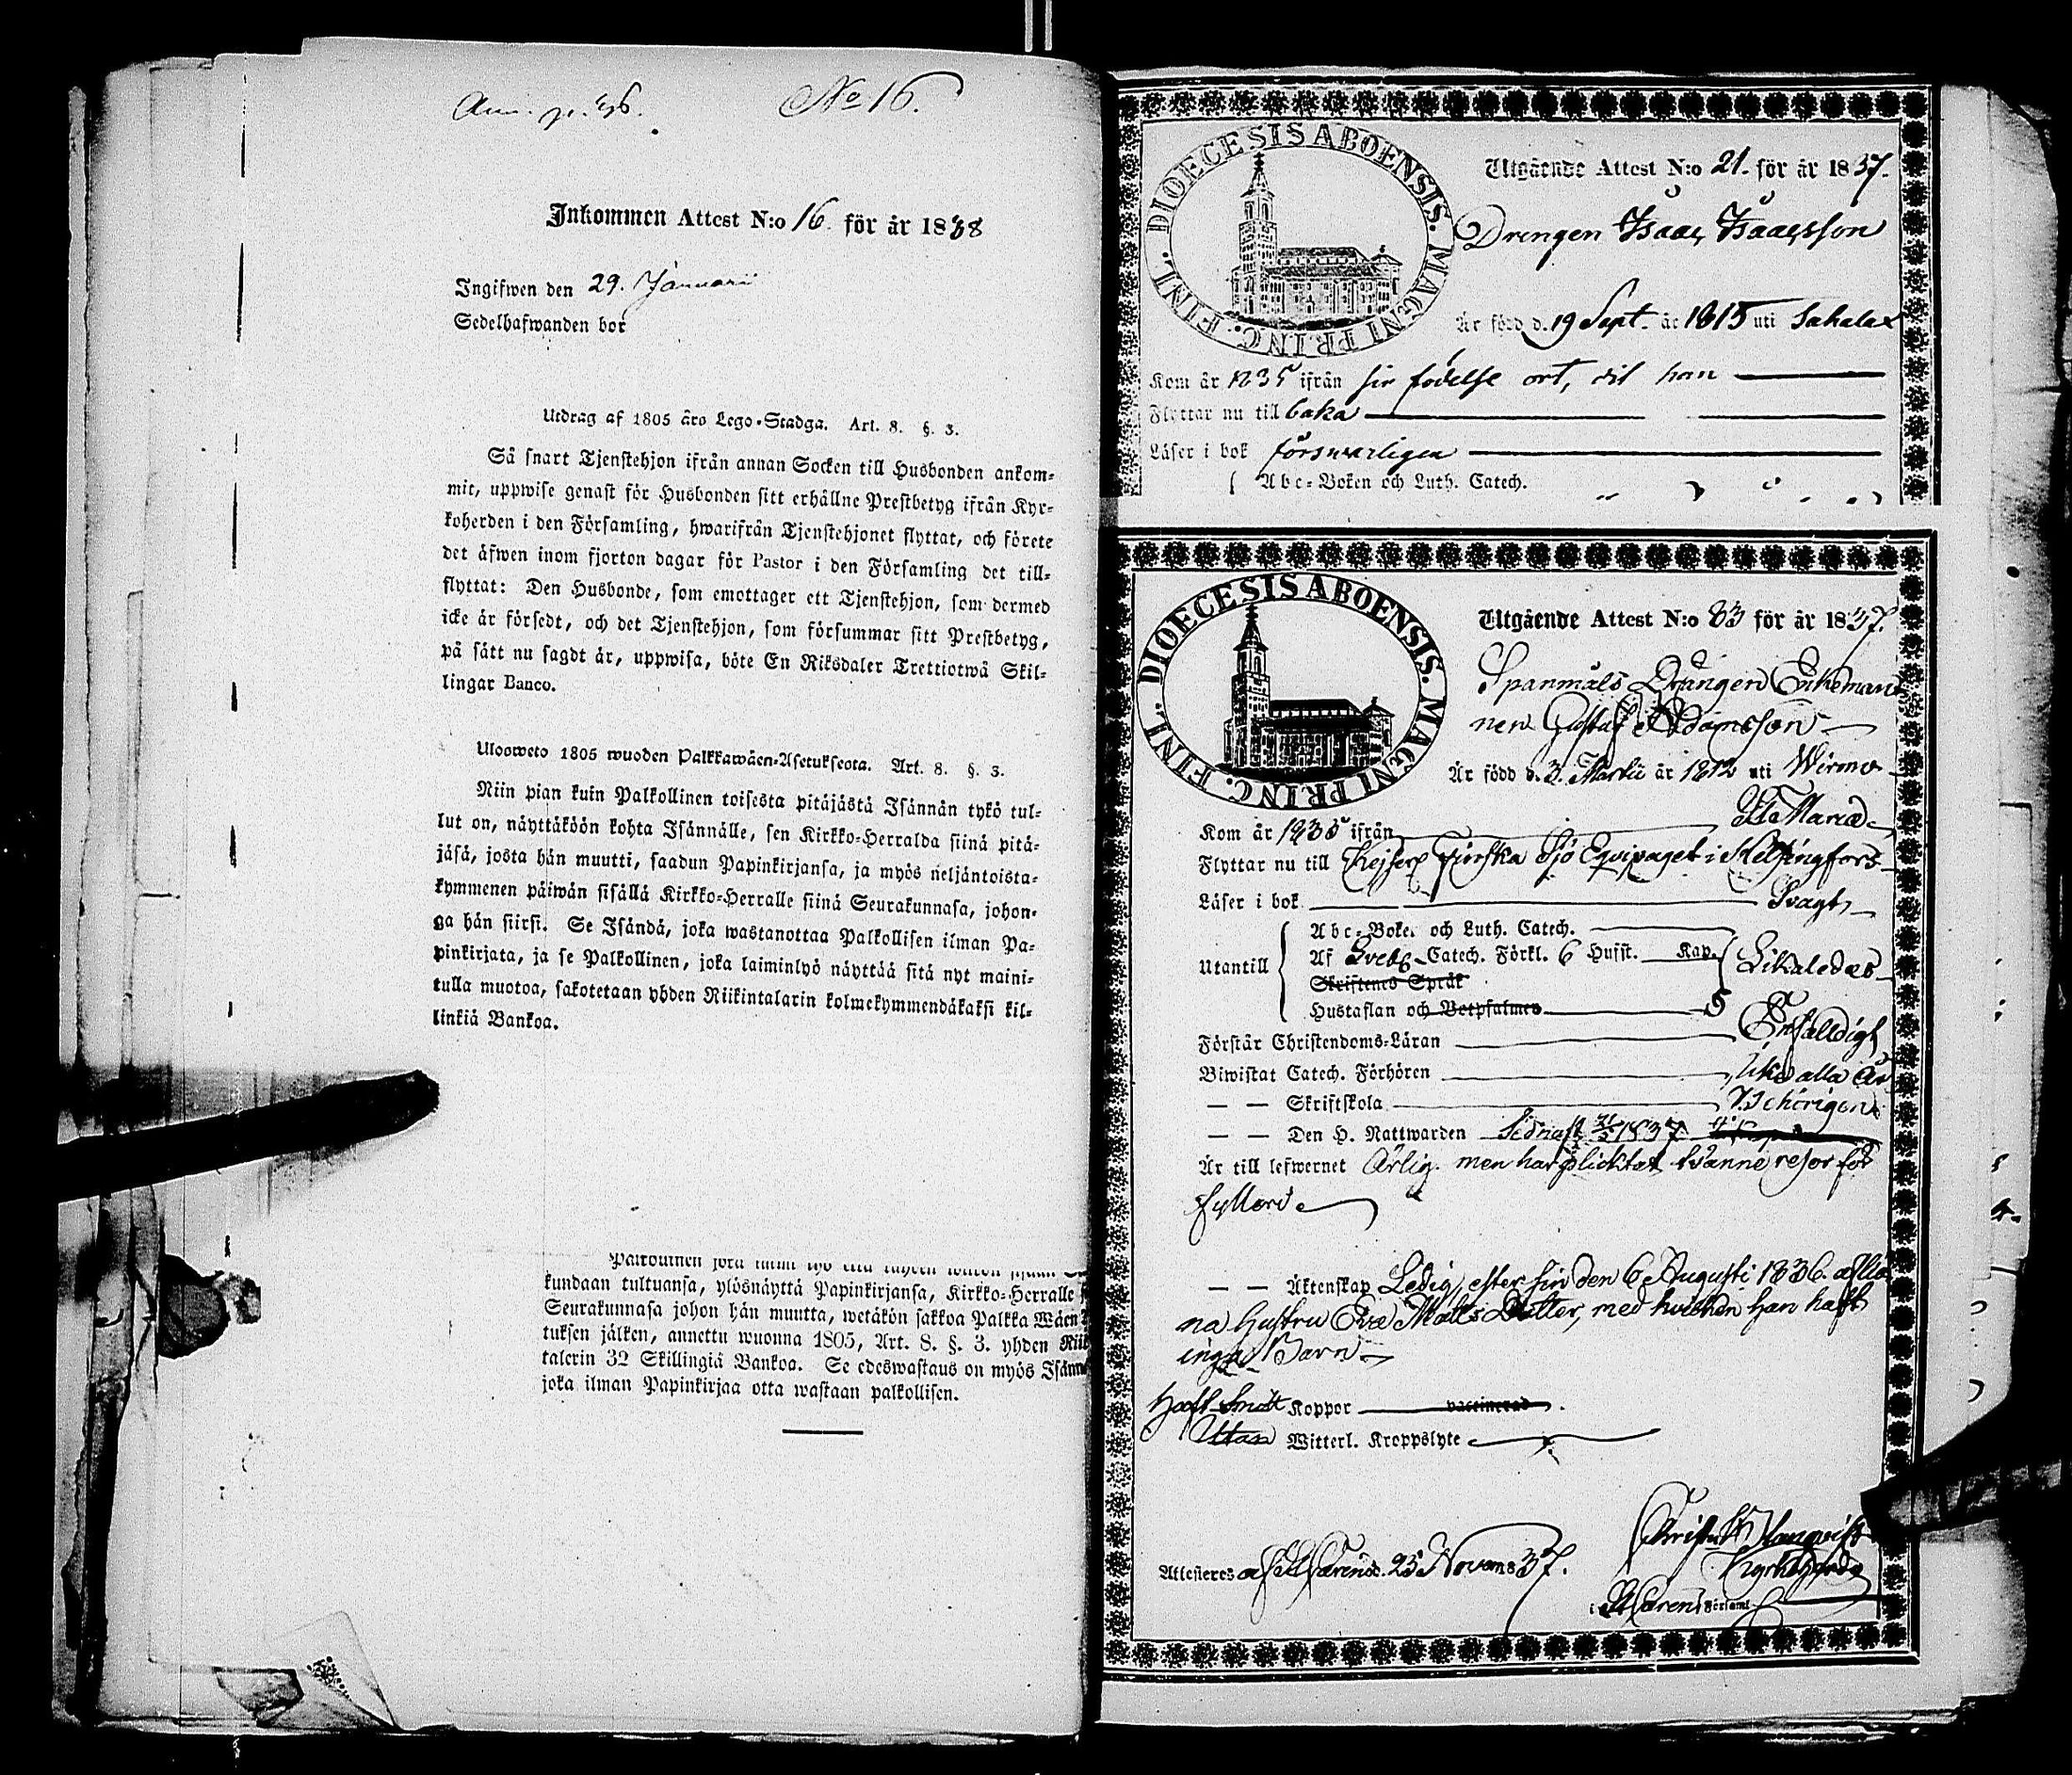 No 16.
Inkommen Attest N:o 16. för år 1838
Ingifwen den 29. Januarii
Sedelhafwanden bor
Utdrag af 1805 års Lego-Stadga. Art. 8. §. 3.
Så snart Tjenstehjon ifrån annan Socken till Husbonden ankom-
mit, uppwise genast för Husbonden sitt erhållne Prestbetyg ifrån Kyr-
koherden i den Församling, hwarifrån Tjenstehjonet flyttat, och förete
det äfwen inom fjorton dagar för Pastor i den Församling det till-
flyttat: Den Husbonde, som emottager ett Tjenstehjon, som dermed
icke är försedt, och det Tjenstehjon, som försummar sitt Prestbetyg,
på sätt nu sagdt är, uppwisa, böte En Riksdaler Trettiotwå Skil-
lingar Banco.
Ulosweto 1805 wuoden Palkkawäen-Asetuksesta. Art. 8. §. 3.
Niin pian kuin Palkollinen toisesta pitäjästä Isännän tykö tul-
lut on, näyttäköön kohta Isännälle, sen Kirkko-Herralda siinä pitä-
jäsä, josta hän muutti, saadun Papinkirjansa, ja myös neljäntoista-
kymmenen päiwän sisällä Kirkko-Herralle siinä Seurakunnasa, johon-
ga hän siirsi. Se Isändä, joka wastanottaa Palkollisen ilman Pa-
pinkirjata, ja se Palkollinen, joka laiminlyö näyttää sitä nyt maini-
tulla muotoa, sakotetaan yhden Riikintalarin kolmekymmendäkaksi kil-
linkiä Bankoa.
kundaan tultuansa, ylösnäyttä Papinkirjansa, Kirkko-Herralle
Seurakunnasa johon hän muutta, wetäkön sakkoa Palkka Wäen
tuksen jälken, annettu wuonna 1805, Art. 8. §. 3. yhden Riik
talerin 32 Skillingiä Bankoa. Se edeswastaus on myös Isänn
joka ilman Papinkirjaa otta wastaan palkollisen.
DIOECESIS ABOENSIS. MAGNI PRINC. FINL.
Utgående Attest N:o 21. för år 1837.
Drengen Isaac Isaacsson
Är född d. 19 Sept. år 1815 uti Sahalax
Kom år 1835 ifrån sin födelse ort, dit han
Flyttar nu till baka
Läser i bok förswarligen
Abc-Boken och Luth. Catech.
DIOECESIS ABOENSIS. MAGNI PRINC. FINL.
Utgående Attest N:o 83 för år 1837.
Spanmåls Drängen Enkeman
nen Gustaf Adamsson
Är född d. 3. Martii år 1812 uti Wirmo
Kom år 1835 ifrån St Marie
Flyttar nu till Kejserl Finska Sjö Eqvipaget i Helsingfors
Läser i bok Svagt
Utantill
Abc-Boken och Luth. Catech.
Af Sveb. Catech. Förkl. 6 Hufst. Kap. Likaledes
Skriftenes Språk
Hustaflan och Botpsalmer 5
Förstår Christendoms-Läran Enfalldigt
Biwistat Catech. Förhören icke alla År
— — Skriftskola Behörigen
— — Den H. Nattwarden Sednast 1837
Är till lefwernet Ärlig. men har plicktat tvänne resor för
fylleri
— — Äktenskap Ledig, efter sin den 6 Augusti 1836. aflid
na Hustru Eva Matts Dotter, med hvilken han haft
inga Barn
Haft Smitt Koppor vaccinerad
Utan Witterl. Kroppslyte
Attesteras af St Mårens d. 25 Novemb 37.
Kyrkoherde
i St Mårens Församl